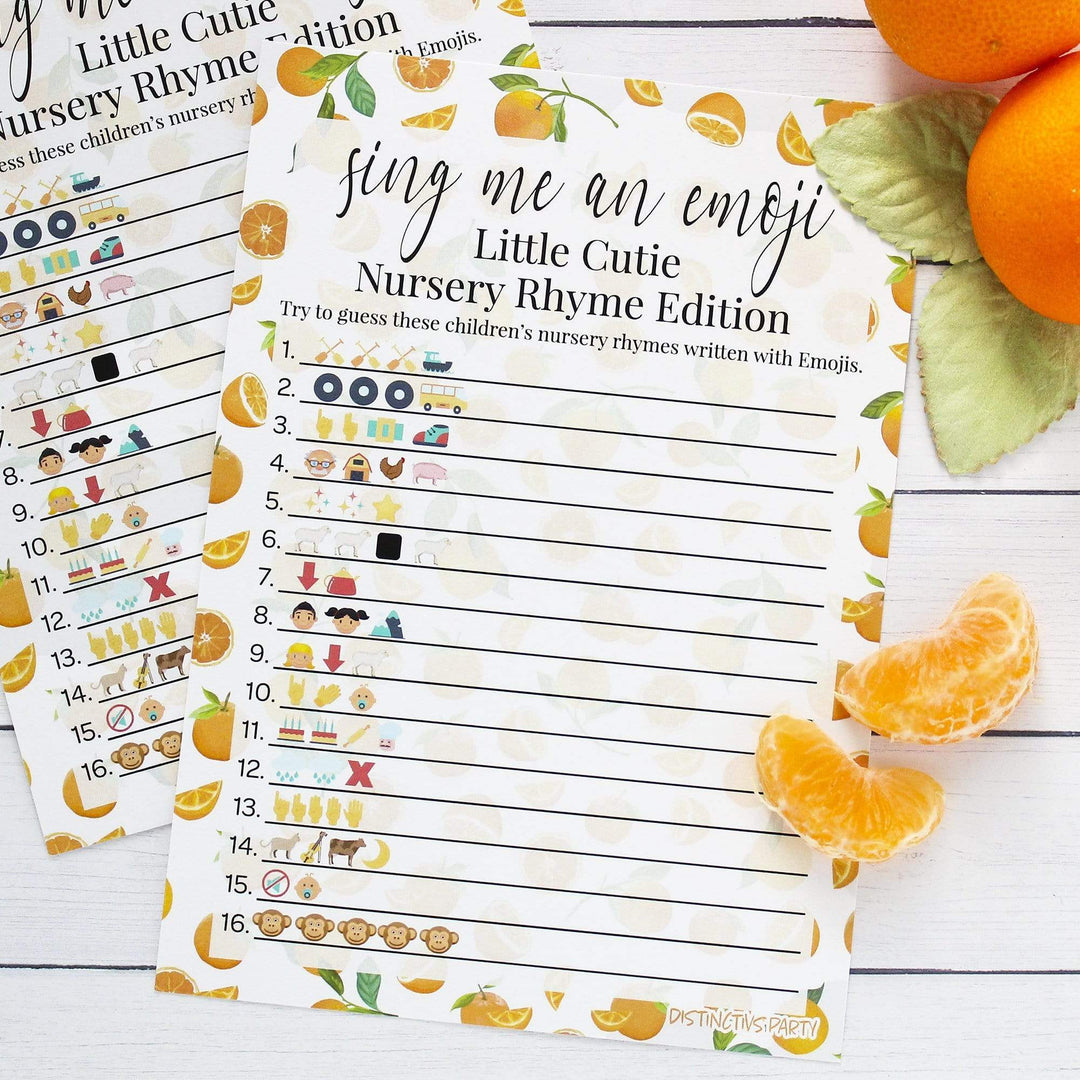 Little Cutie
Nursery Rhyme Edition
these children's nursery
with Emojis.
7.
8.
9.
10.
11.
12.
13.
14.
15.
16.
sing me an emoji
Little Cutie
Nursery Rhyme Edition
Try to guess these children's nursery rhymes written with Emojis.
1.
2.
3.
4.
5.
6.
7.
8.
9.
10.
11.
12.
13.
14.
15.
16.
DISTINCTIVS PARTY